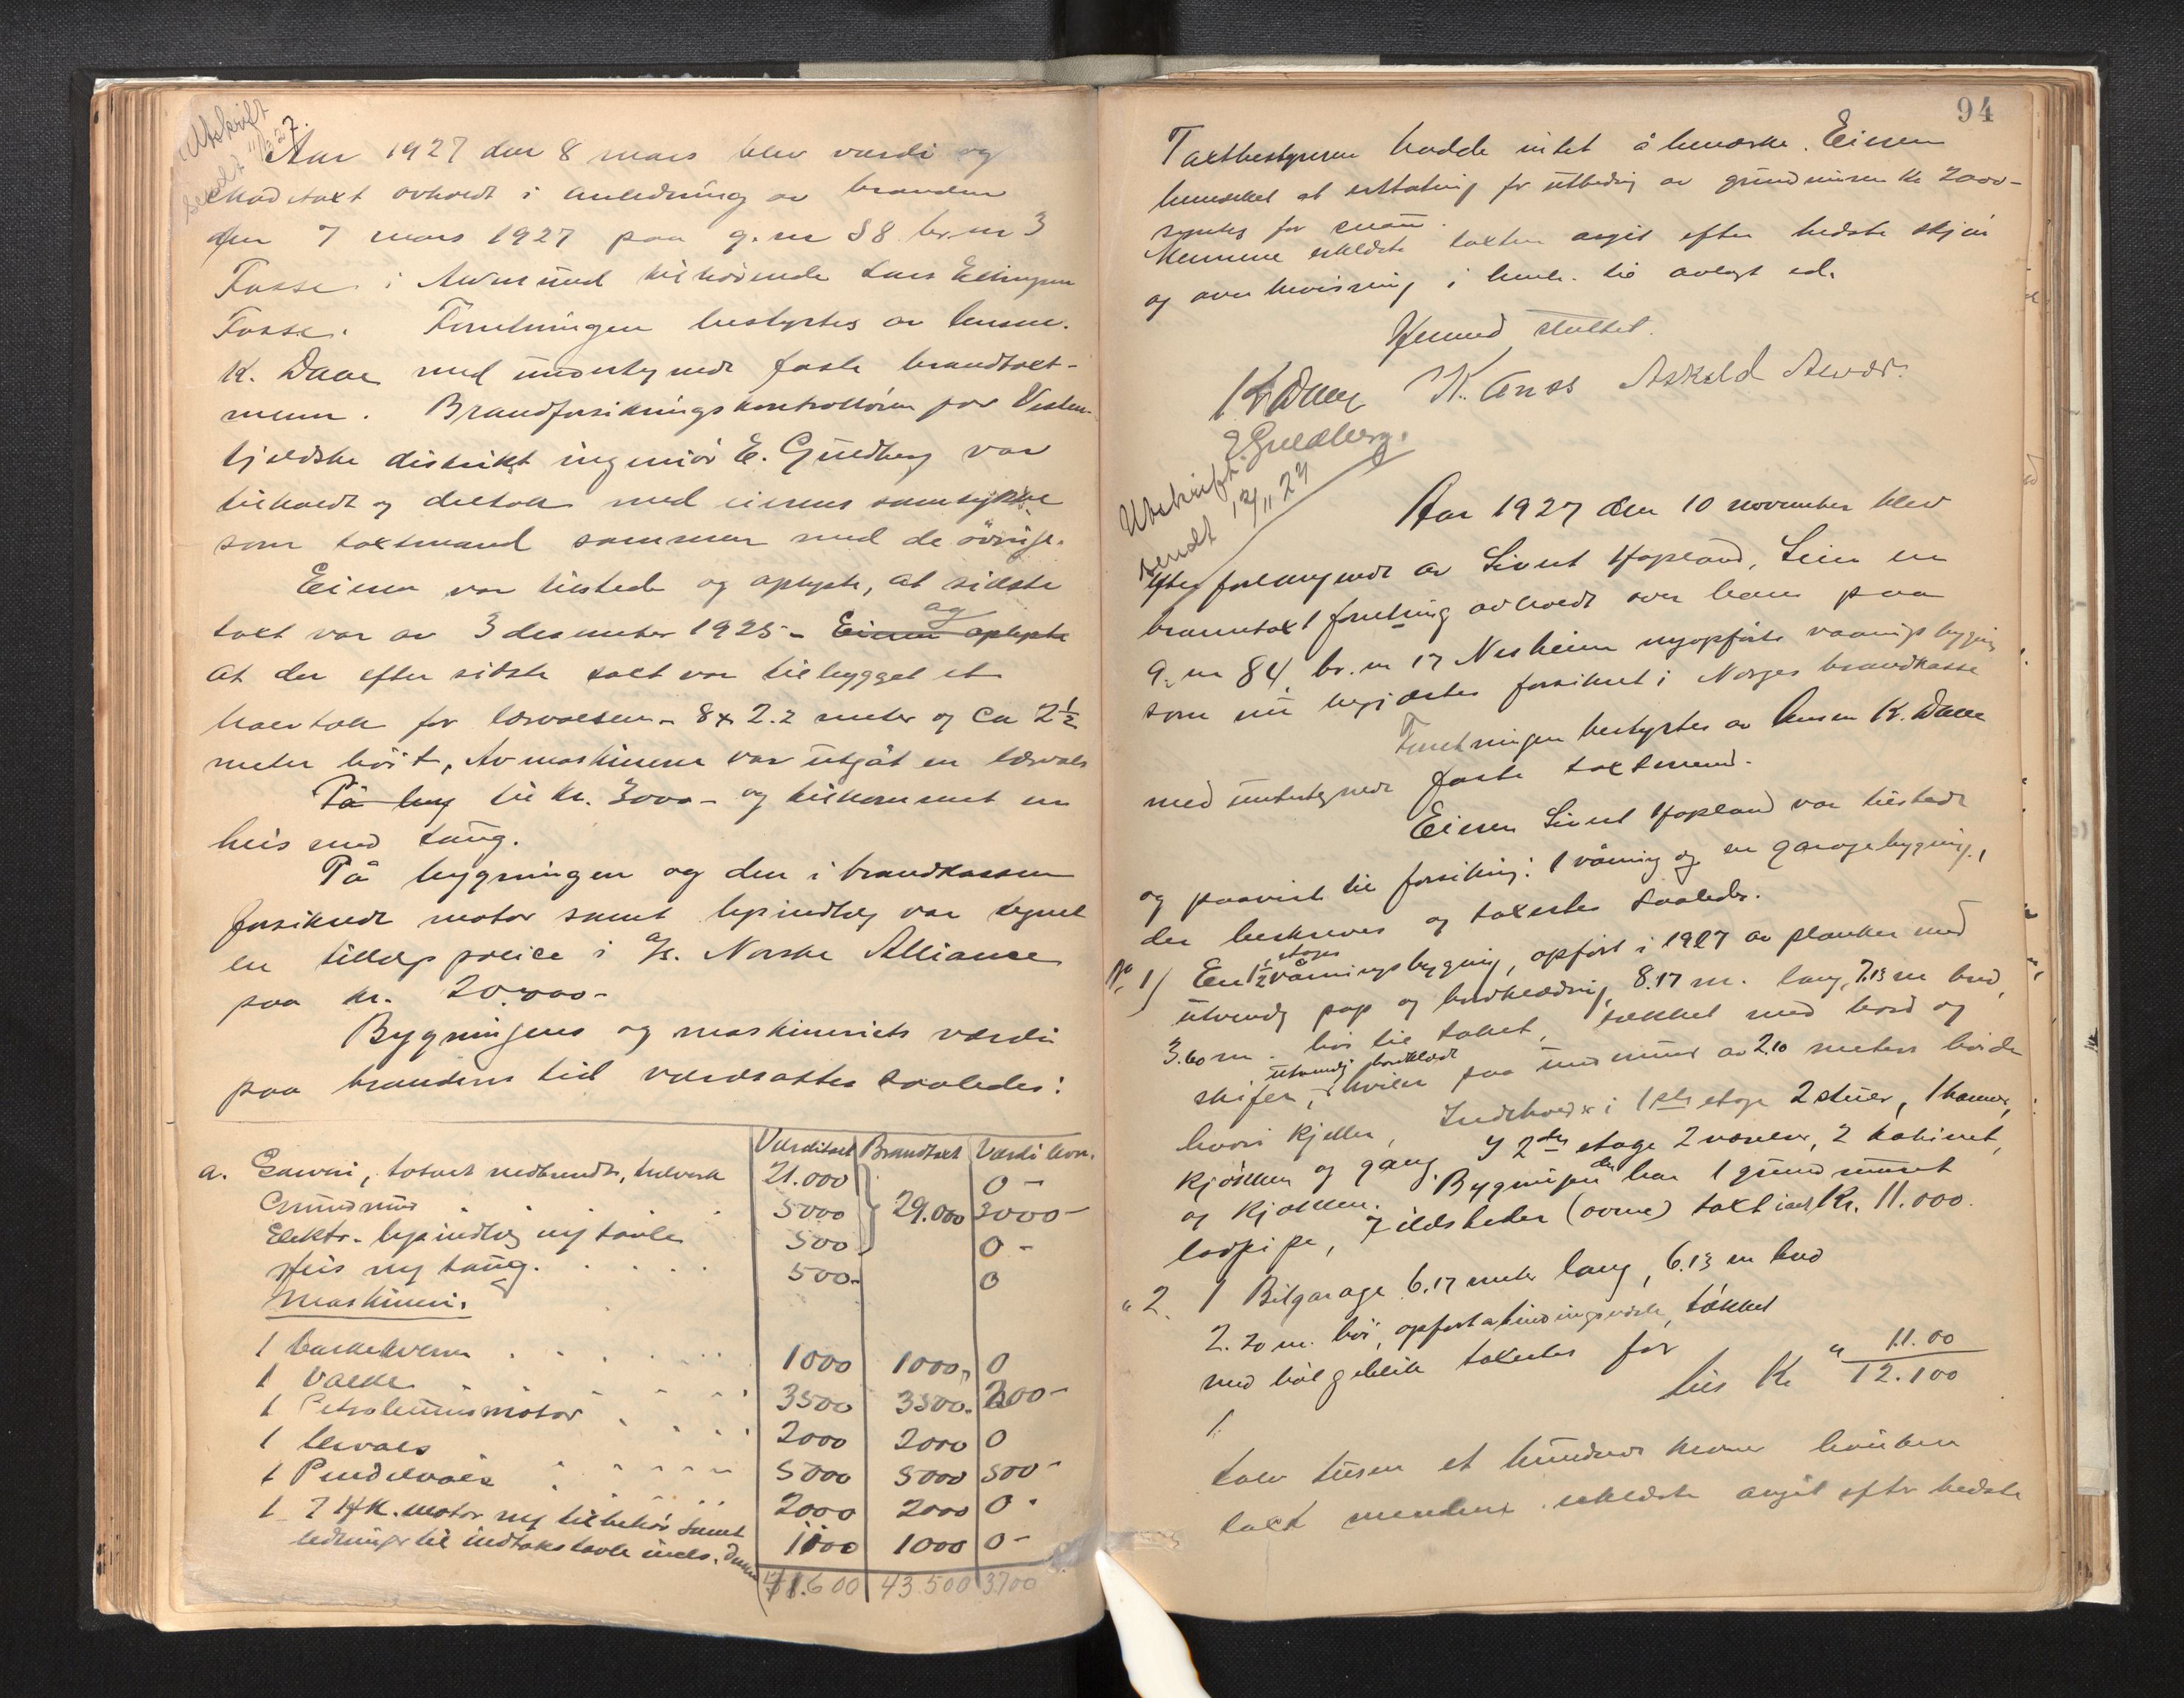 Utskrift
sendt 11/3 27.
Aar 1927 den 8 mars blev værdi og
skadetaxt avholdt i anledning av branden
den 7 mars 1927 paa g. nr 88 br. nr 3
Fosse i Alversund tilhörende Lars Ellingsen
Fosse. Forretningen bestyrtes av lensm.
K. Daae med undertegnede faste brandtaxt-
menn. Brandforsikringskontrolløren for Vesten-
fjeldske distrikt ingeniör E. Guldberg var
tilkaldt og deltok med eierens samtykke
som taxtmand sammen med de övrige.
Eieren var tilstede og oplyste, at sidste
taxt var av 3 desember 1925 - Eieren oplyste og
at der efter sidste taxt var tilbygget et
halvtak for lærvalsen - 8 x 2.2 meter og ca 2½
meter höit, Av maskinerne var utgåt en lærvals
På byg til kr. 3000 - og tilkommet en
heis med taug.
På bygningen og den i brandkassen
forsikrede motor samt lysindlæg var tegnet
en tillægspolice i a/s. Norske Alliance
paa kr. 20.000 -
Bygningens og maskineriets værdi
paa brandens tid værdsattes saaledes:
Værditaxt Brandtaxt Værdi levn.
a. Garveri, totalt nedbrendt, trelverk 21.000 0 -
Grundmur 5000 29.000 3000 -
Elektr. lysindlæg m/ tavle 500 0 -
Heis m/ taug. 500 - 0
Maskineri.
1 barkekvern 1000 1000 0
1 Valke 3500 3500. 200 -
1 Petroleumsmotor 2000 2000 0
1 Lervals 5000 5000 500 -
1 Pendelvals 2000 2000 0 -
1 7 HK. motor m/ tilbehör samt
ledninger til indtakstavle inkl. denne 1100 1000 0 -
41.600 43.500 3700
94
Taxtbestyreren hadde intet å bemærke. Eieren
bemerket at erstatning for utbedring av grundmuren kr 2000 -
syntes for snau.
Mennene erklærte taxten avgit efter bedste skjön
og overbevisning i henh. til avlagt ed.
Hermed sluttet.
K Daae K. Anos Askeld Alver.
E Guldberg.
Utskrift
sendt 12/11 27
Aar 1927 den 10 november blev
efter forlangende av Sivert Hopland, Seim en
branntaxtforretning avholdt over hans paa
g. nr 84 br. nr 17 Nesheim nyopførte vaaningsbygning
som nu begjærtes forsikret i Norges brandkasse
Forretningen bestyrtes av lensm K. Daae
med undertegnede faste taxtmend.
Eieren Sivert Hopland var tilstede
og paaviste til forsikring: 1 våning og en garagebygning,
der beskreves og taxertes saaledes.
No 1) En 1½ etages våningsbygning, opført i 1927 av planker med
utvendig pap og bordklædning, 8.17 m. lang, 7.13 m bred,
3.60 m. höi til taket, tækket med bord og
skifer, utvendig bordklædt hviler paa grundmur av 2.10 meters höide
hvori kjeller, Indeholder i 1ste etage 2 stuer, 1 kammer,
kjökken og gang. I 2den etage 2 værelser, 2 kabinet,
og kjökken. Bygningen har 1 grundmuret
lodpipe, 7 ildsteder (ovne) taxt ialt Kr. 11.000.
" 2. 1 Bilgarage 6.17 meter lang, 6.13 m bred
2.20 m. höi, opført av bindingsverk, tækket
med bølgeblik taxertes for " 11.00
tils Kr 12.100
1.
tolv tusen et hundrede kroner hvilken
taxt mendene erklærte avgit efter bedste